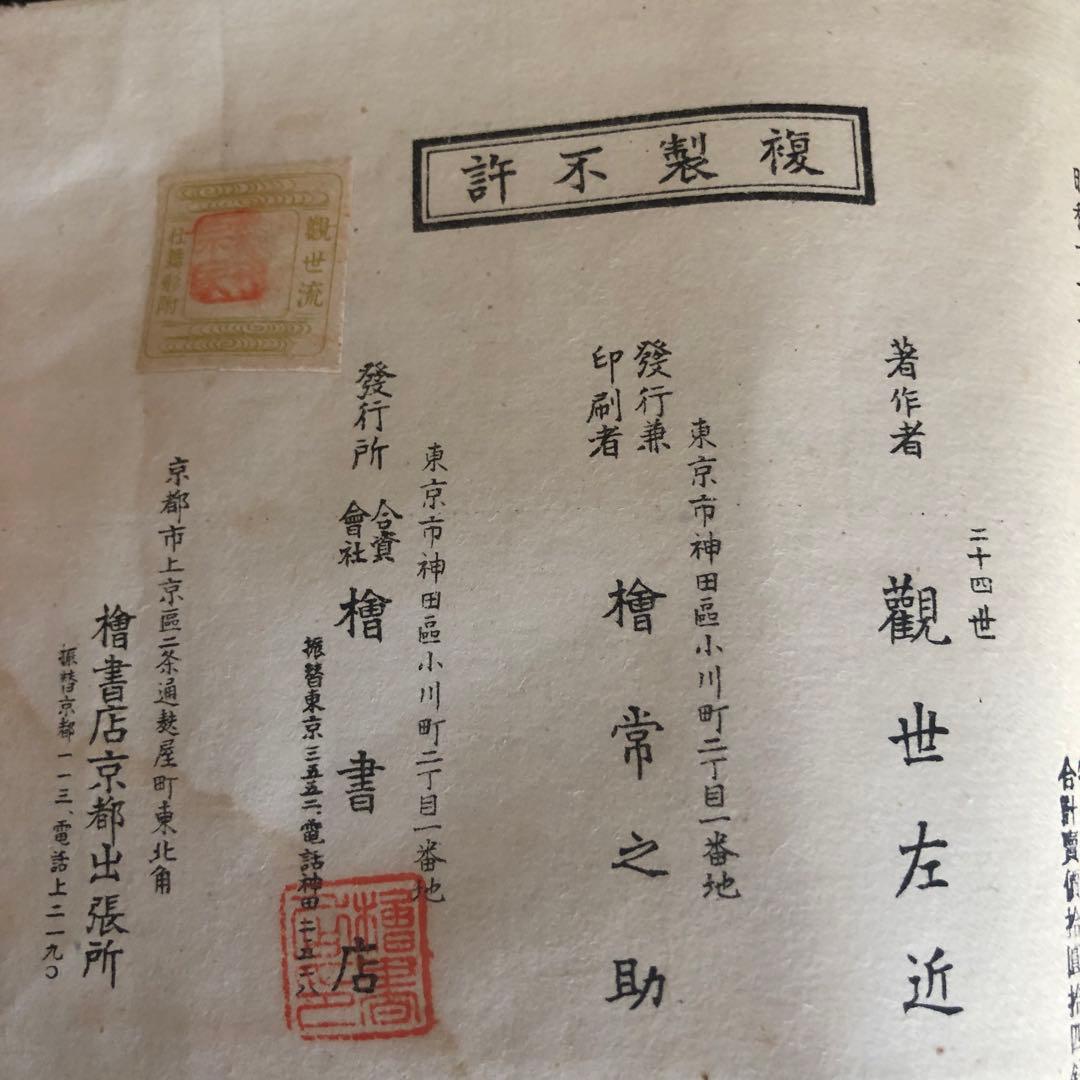 複製不許
合計賣價拾圓拾四
二十四世
著作者 觀世左近
東京市神田區小川町二丁目一番地
發行兼
印刷者
檜常之助
東京市神田區小川町二丁目一番地
發行所
合資
會社
檜書店
振替東京三五五二、電話神田二五二八
京都市上京區二条通麩屋町東北角
檜書店京都出張所
振替京都一一三、電話上二一九〇
觀世流
檜書